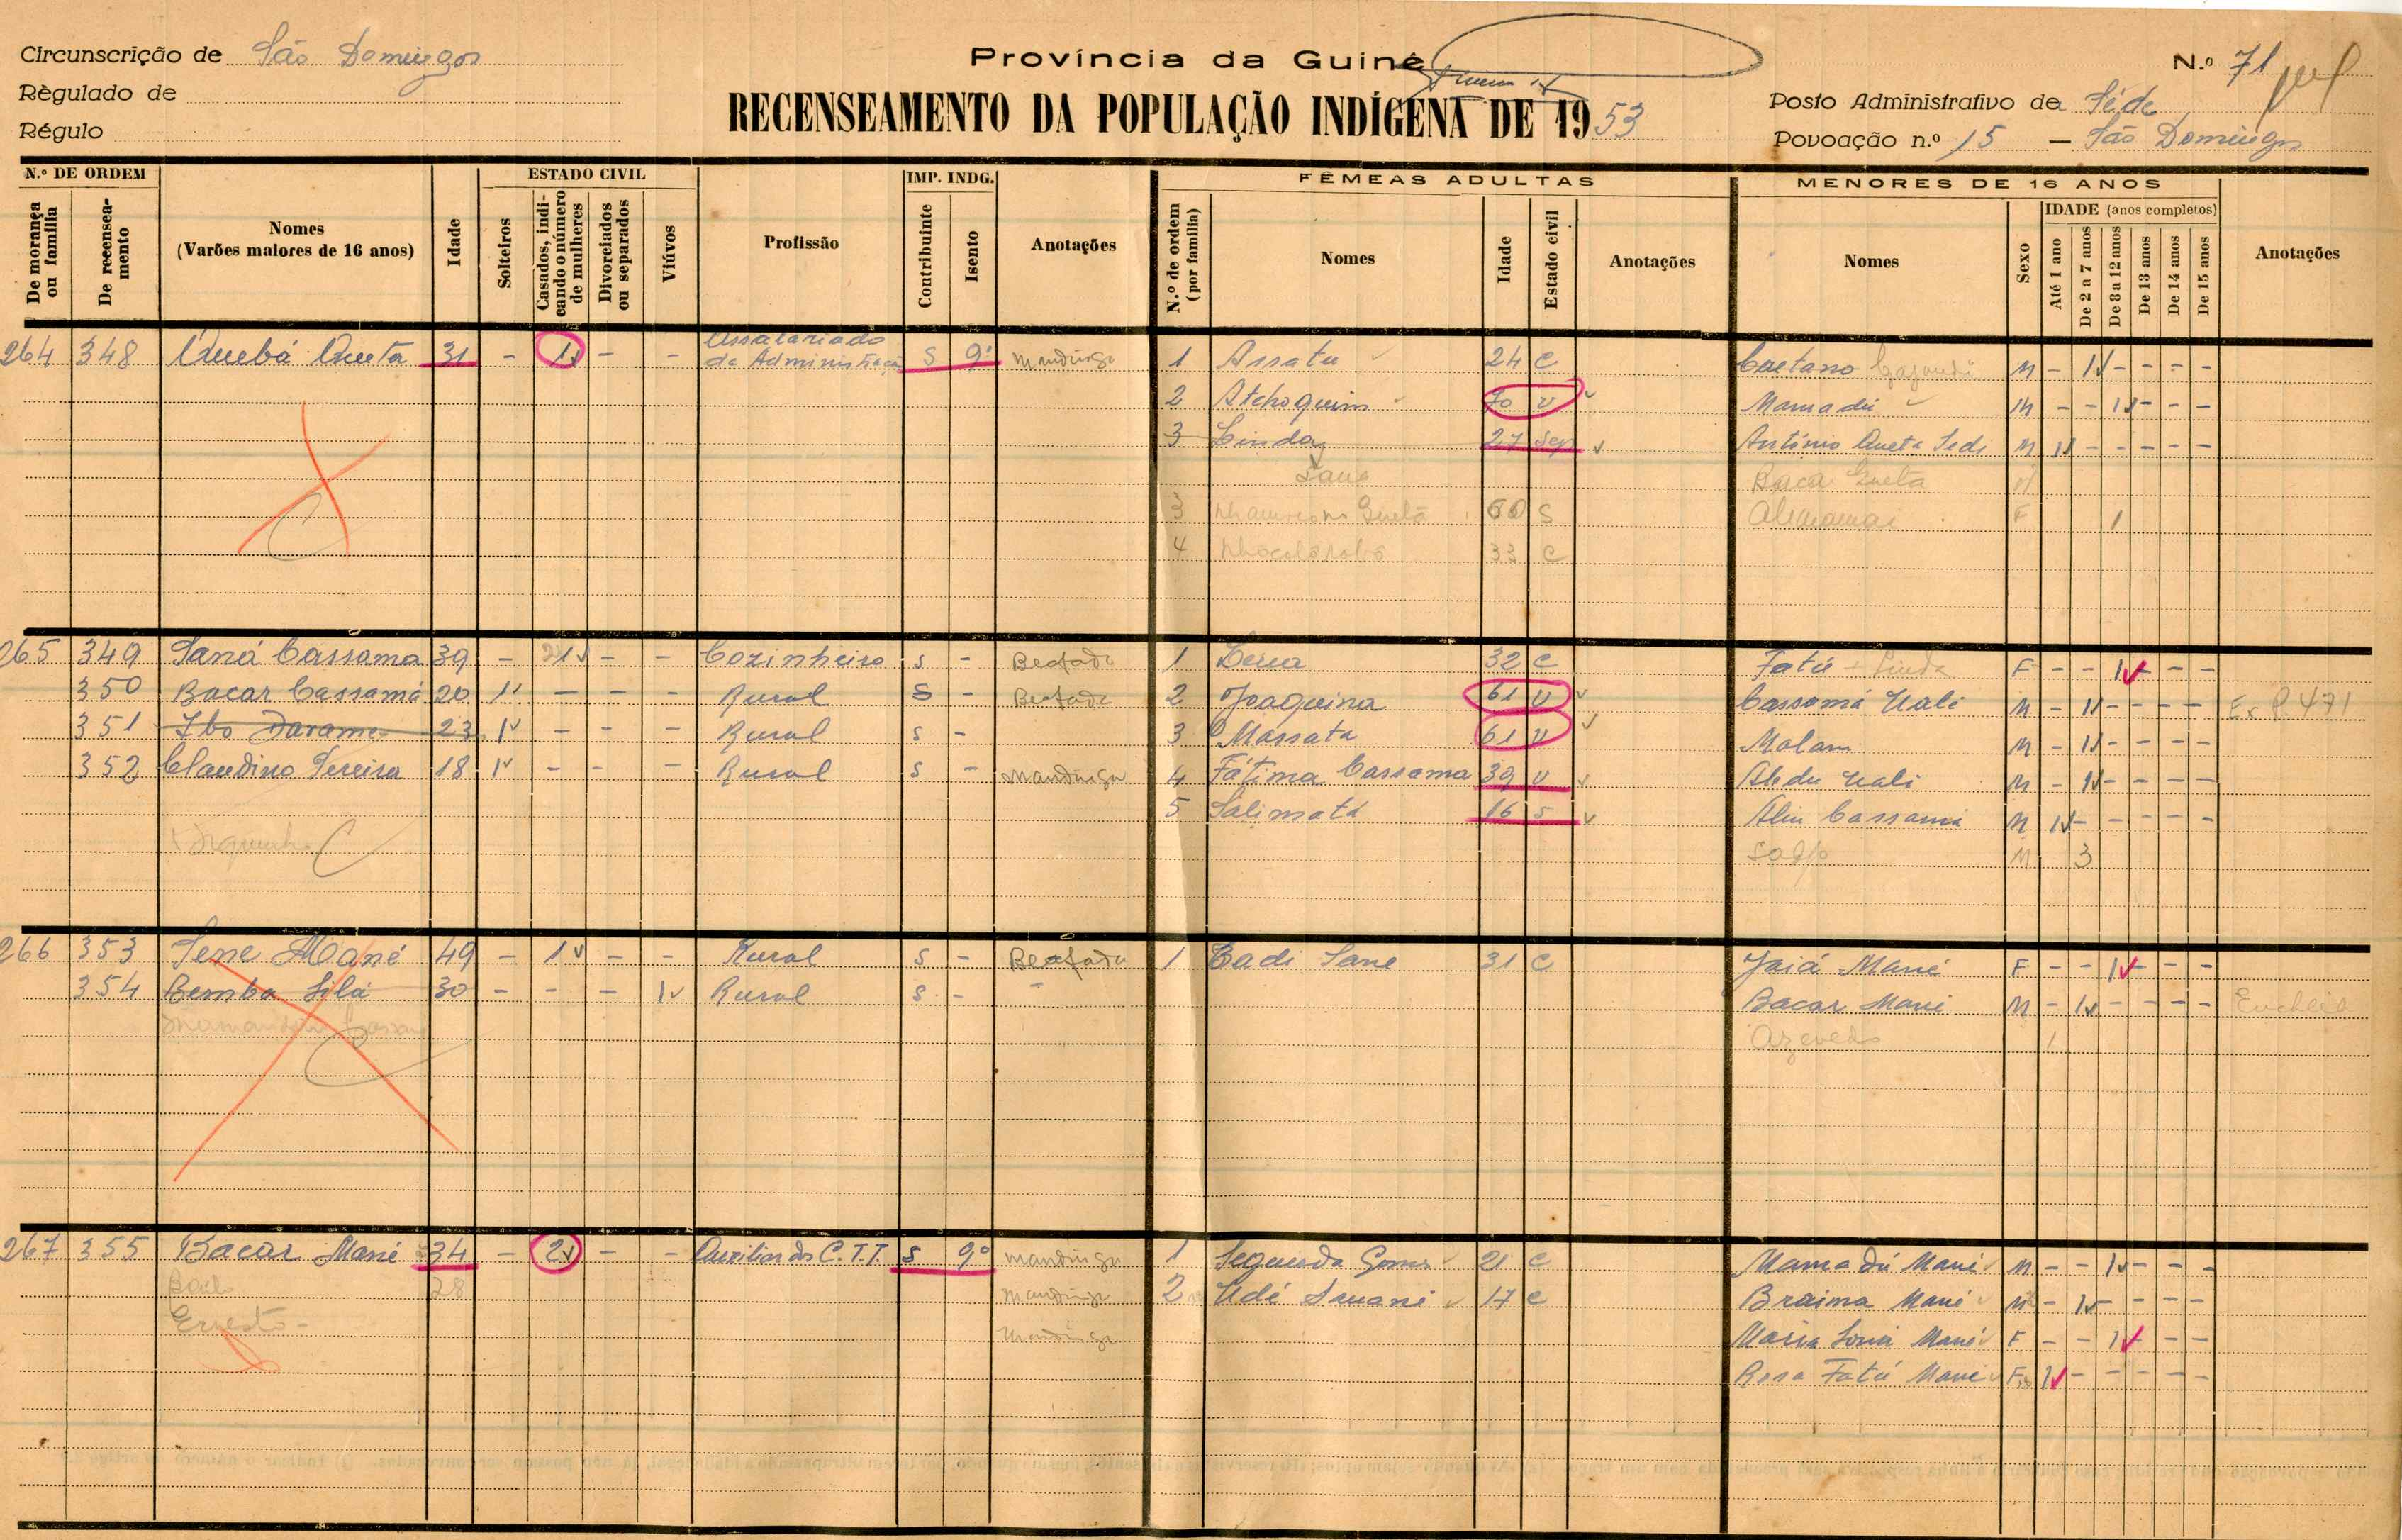 Circunscrição de São Domingos
Règulado de
Régulo
Província da Guiné
RECENSEAMENTO DA POPULAÇÃO INDÍGENA DE 1953
N.º 71
Posto Administrativo de Séde
Povoação n.º 15 — São Domingos
N.º DE ORDEM
De morança ou família
De recenseamento
Nomes
(Varões maiores de 16 anos)
Idade
ESTADO CIVIL
Solteiros
Casados, indicando o número de mulheres
Divorciados ou separados
Viúvos
Profissão
IMP. INDG.
Contribuinte
Isento
Anotações
FÊMEAS ADULTAS
N.º de ordem (por família)
Nomes
Idade
Estado civil
Anotações
MENORES DE 16 ANOS
Nomes
Sexo
IDADE (anos completos)
Até 1 ano
De 2 a 7 anos
De 8 a 12 anos
De 13 anos
De 14 anos
De 15 anos
Anotações
264 348 31 - 1 - - Assalariado da Administração S 9º Mandinga 1 Assatu 24 C Caetano M - 1 - - - -
2 Atchoquim 70 V Mamadú M - - 1 - - -
3 Linda 27 Sep António Queta M 1 - - - - -
Sane
3 60 S F 1
4 33 C
265 349 Saná Cassama 39 - 1 - - Cozinheiro S - Beafada 1 32 C Fatú F - - 1 - - -
350 Bacar Cassamá 20 1 - - - Rural S - Beafada 2 Joaquina 61 V Cassamá Uali M - 1 - - - -
351 Ibo Darame 23 1 - - - Rural S - 3 Massata 61 V Malam M - 1 - - - -
352 Claudino Pereira 18 1 - - - Rural S - Mandinga 4 Fátima Cassama 39 V Abdu Uali M - 1 - - - -
5 Salimatá 16 S Aliu Cassamá M 1 - - - - -
M 3
266 353 Sene Mané 49 - 1 - - Rural S - Beafada 1 Cadi Sane 31 C Jaiá Mané F - - 1 - - -
354 Bemba Silá 30 - - - 1 Rural S - Bacar Mané M - 1 - - - -
Azevedo 1
267 355 Bacar Mané 34 - 2 - - Auxiliar dos C.T.T. S 9º Mandinga 1 Segunda Gomes 21 C Mamadú Mané M - - 1 - - -
28 Mandinga 2 Udé 17 C Braima Mané M - 1 - - - -
Ernesto - Mandinga Maria Mané F - - 1 - - -
Rosa Fatú Mané F 1 - - - - -